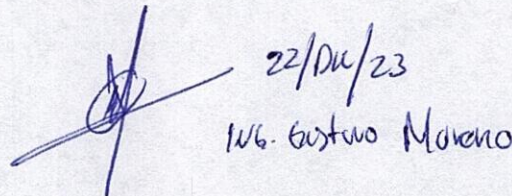 22/Dic/23
Ing. Gustavo Moreno